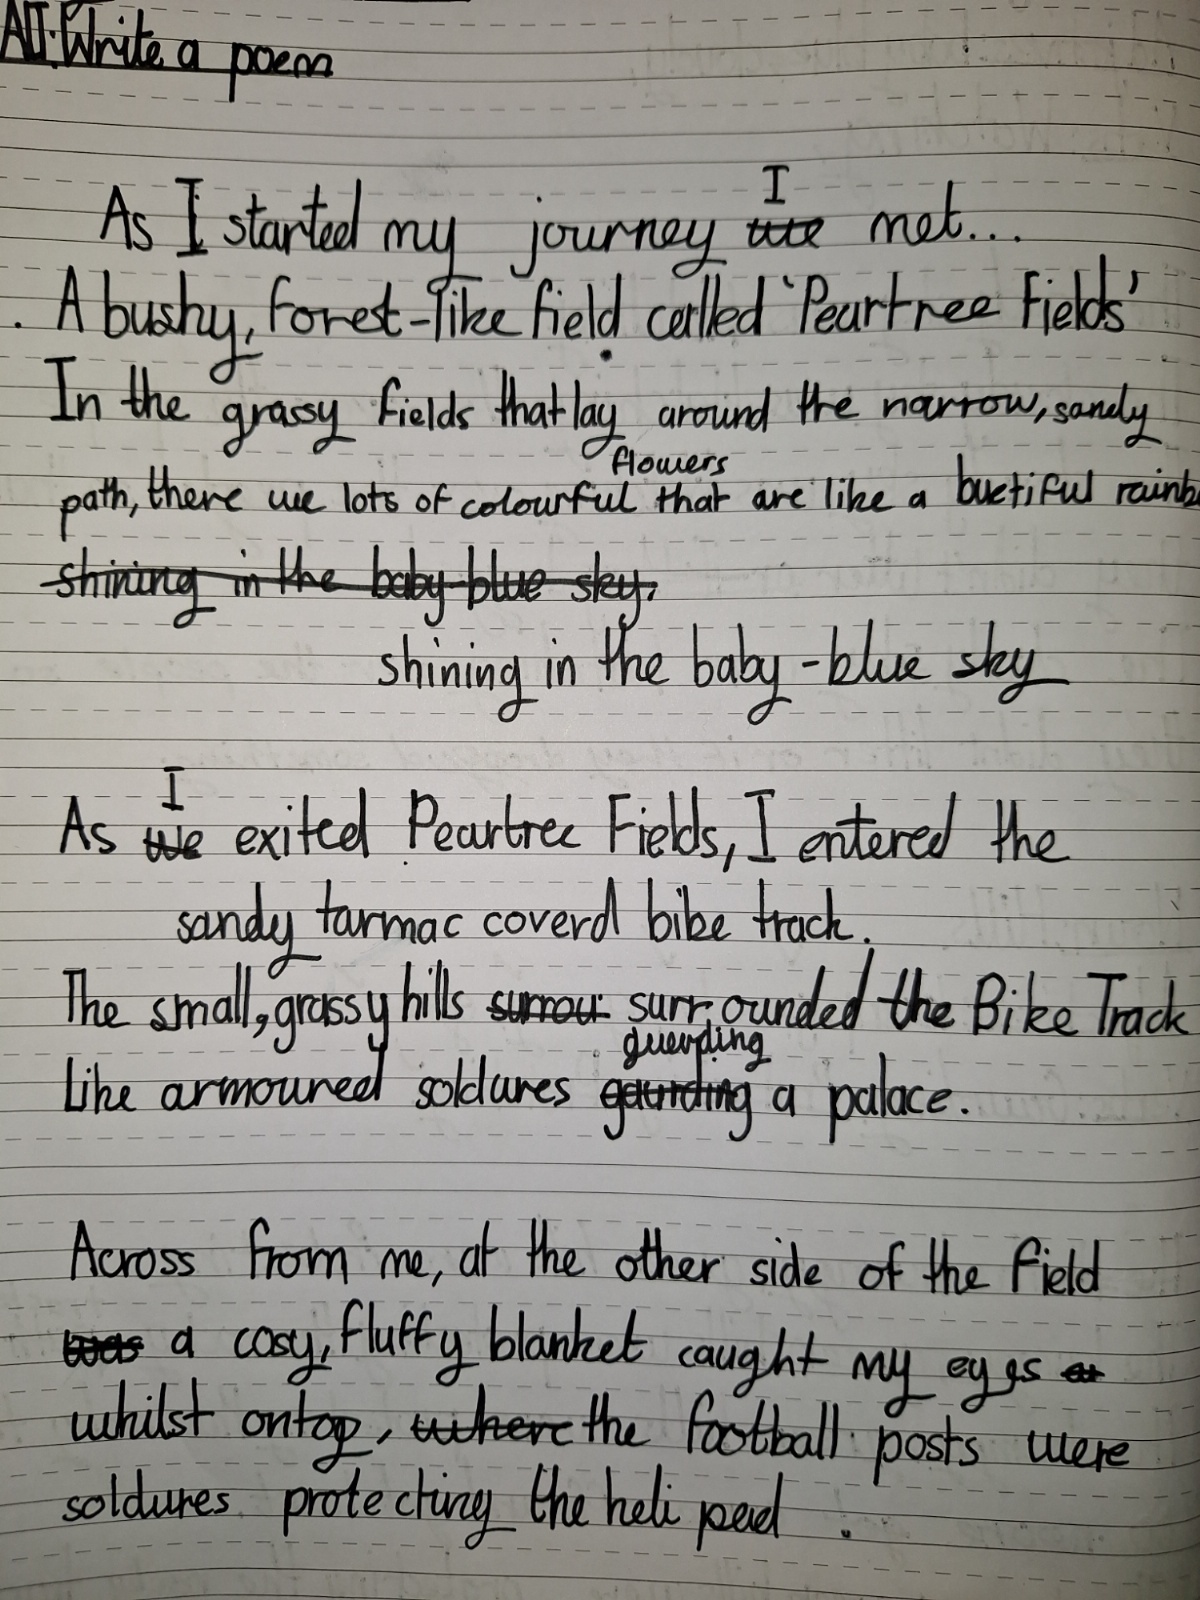 AIT: Write a poem
As I started my journey I met...
A bushy, forest-like field called 'Peartree Fields'
In the grassy fields that lay around the narrow, sandy
path, there we lots of colourful flowers that are like a buetiful rainb
shining in the baby-blue sky.
shining in the baby-blue sky
As I exited Peartree Fields, I entered the
sandy tarmac coverd bike track.
The small, grassy hills surrou surrounded the Bike Track
like armoured soldures guarding a palace.
Across from me, at the other side of the field
was a cosy, fluffy blanket caught my eyes
whilst ontop, where the football posts were
soldures protecting the heli pad.